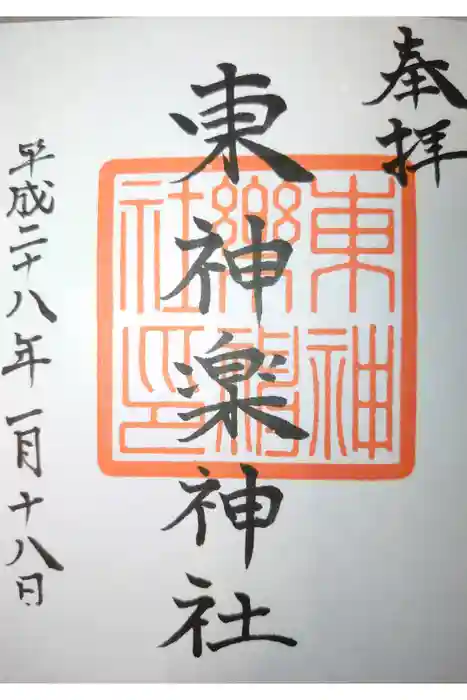 奉拝
東神楽神社
平成二十八年一月十八日
東神
樂
社印